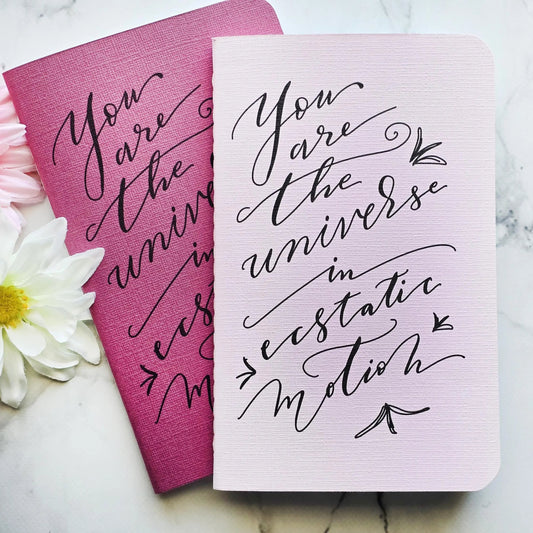 You
are
the
universe
in
ecstatic
motion
You
are
the
universe
in
ecs
m